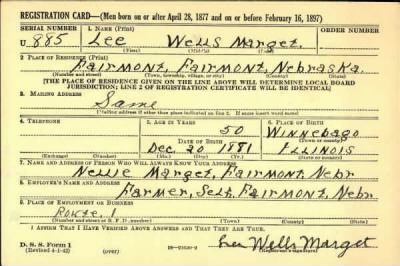 REGISTRATION CARD—(Men born on or after April 28, 1877 and on or before February 16, 1897)
SERIAL NUMBER 1. NAME (Print) ORDER NUMBER
U 885 Lee Wells Marget.
(First) (Middle) (Last)
2. PLACE OF RESIDENCE (Print)
Fairmont, Fairmont, Nebraska.
(Number and street) (Town, township, village, or city) (County) (State)
[THE PLACE OF RESIDENCE GIVEN ON THE LINE ABOVE WILL DETERMINE LOCAL BOARD
JURISDICTION; LINE 2 OF REGISTRATION CERTIFICATE WILL BE IDENTICAL]
3. MAILING ADDRESS
Same
[Mailing address if other than place indicated on line 2. If same insert word same]
4. TELEPHONE 5. AGE IN YEARS 6. PLACE OF BIRTH
50 Winnebago
DATE OF BIRTH (Town or county)
Dec 20 1881 Illinois
(Exchange) (Number) (Mo.) (Day) (Yr.) (State or country)
7. NAME AND ADDRESS OF PERSON WHO WILL ALWAYS KNOW YOUR ADDRESS
Nellie Marget, Fairmont, Nebr
8. EMPLOYER'S NAME AND ADDRESS
Farmer, Self, Fairmont, Nebr.
9. PLACE OF EMPLOYMENT OR BUSINESS
Route, 1
(Number and street or R. F. D. number) (Town) (County) (State)
I AFFIRM THAT I HAVE VERIFIED ABOVE ANSWERS AND THAT THEY ARE TRUE.
D. S. S. Form 1
(Revised 4-1-42) (over) Lee Wells Marget
(Registrant's signature)